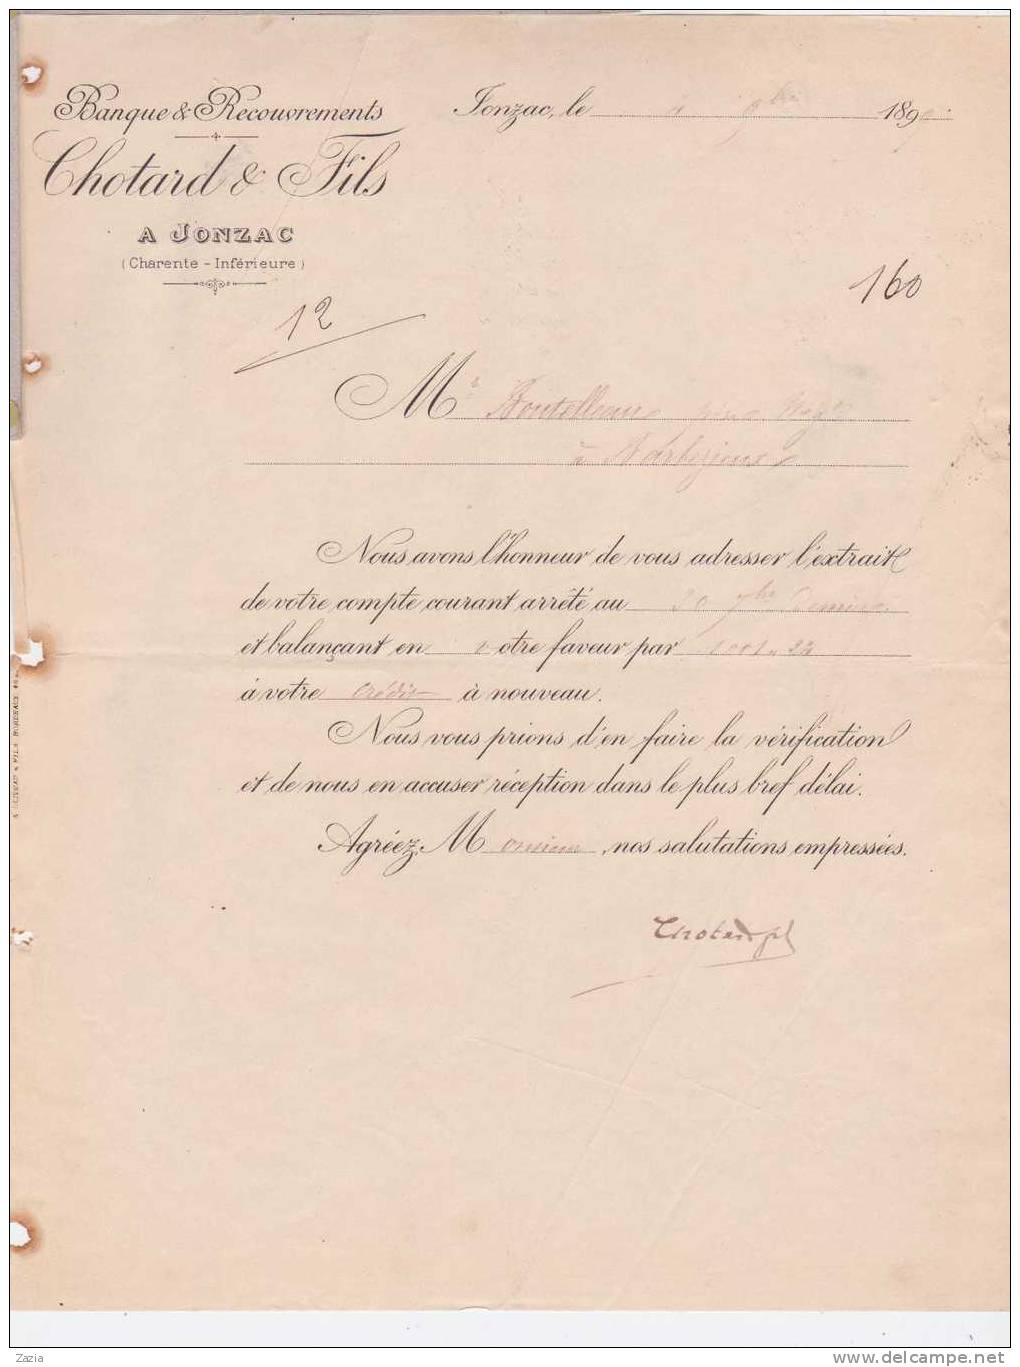 Banque & Recouvrements
Chotard & Fils
A JONZAC
(Charente - Inférieure)
Jonzac, le 4 9bre 1890
160
12
Mr Boutelleau
à Barbezieux
Nous avons l'honneur de vous adresser l'extrait
de votre compte courant arrêté au 30 7bre dernier
et balançant en votre faveur par
à votre crédit à nouveau.
Nous vous prions d'en faire la vérification
et de nous en accuser réception dans le plus bref délai.
Agréez, Monsieur, nos salutations empressées.
Chotard
& FILS BORDEAUX
Zazia
www.delcampe.net